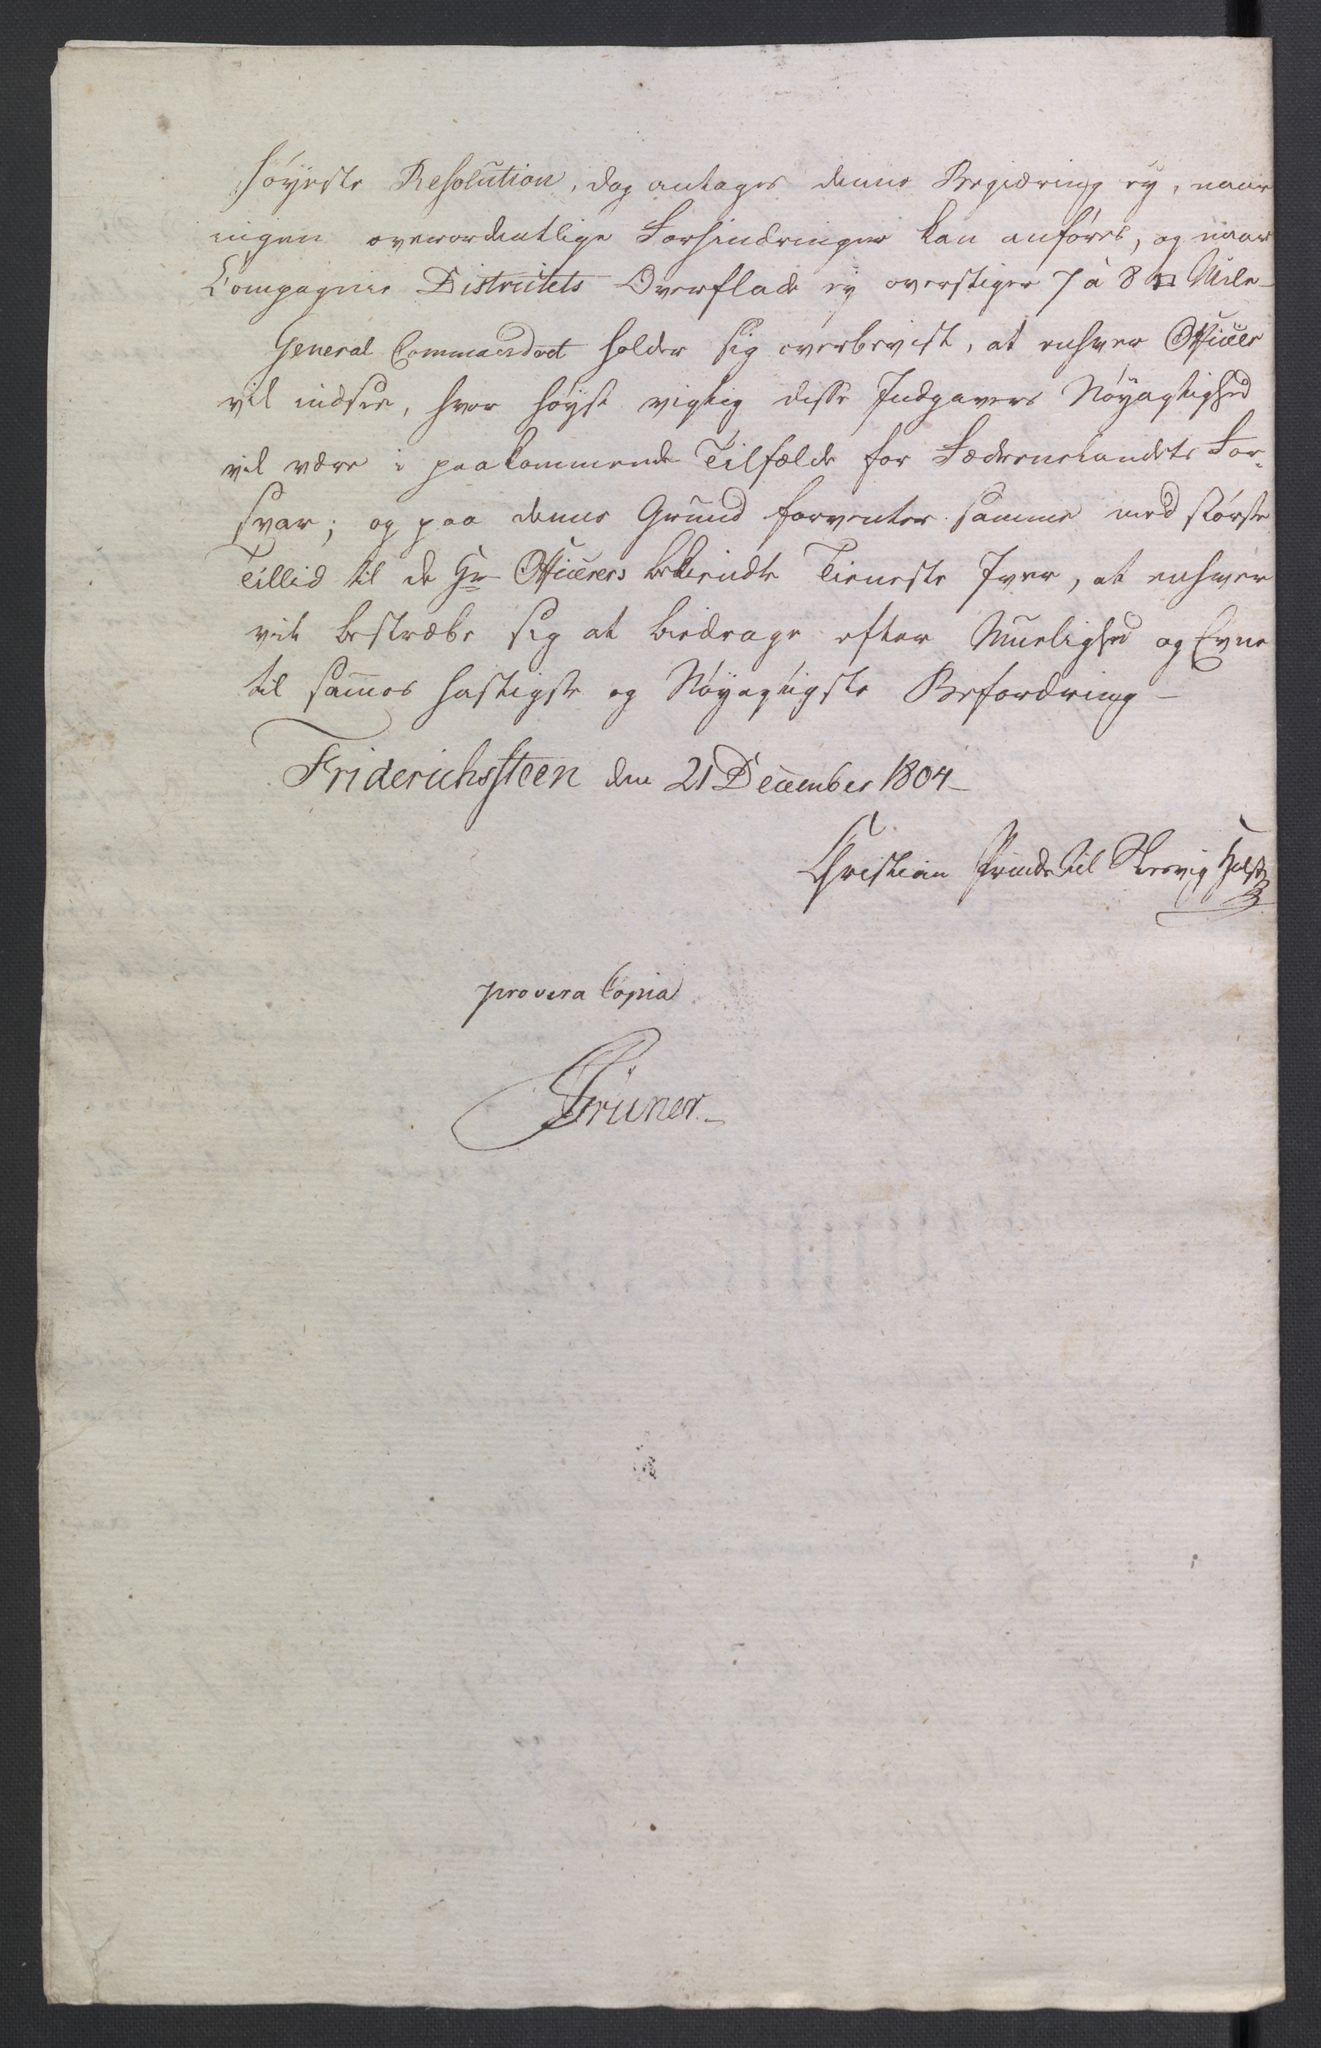 høyeste Resolution, dog antages denne Begiæring ey, naar
ingen overordentlige Forhindringer kan anføres, og naar
Compagnie Districtets Overflade ey overstiger 7 à 8 □ Mile –
General Commandoet holder sig overbevist, at enhver Officier
vil indsee, hvor høyst vigtig disse Indgavers Nøyagtighed
vil være i paakommende Tilfælde for Fædrenelandets For-
svar; og paa denne Grund forventer samme med største
Tillid til de Hr Officerers bekiendte Tieneste Iver, at enhver
vil bestræbe sig at bidrage efter Muelighed og Evne
til sammes hastigste og Nøyagtigste Befordring –
Friderichssteen den 21 December 1804 –
Christian Prinds til Slesvig Holst
pro vera Copia
Grüner. –